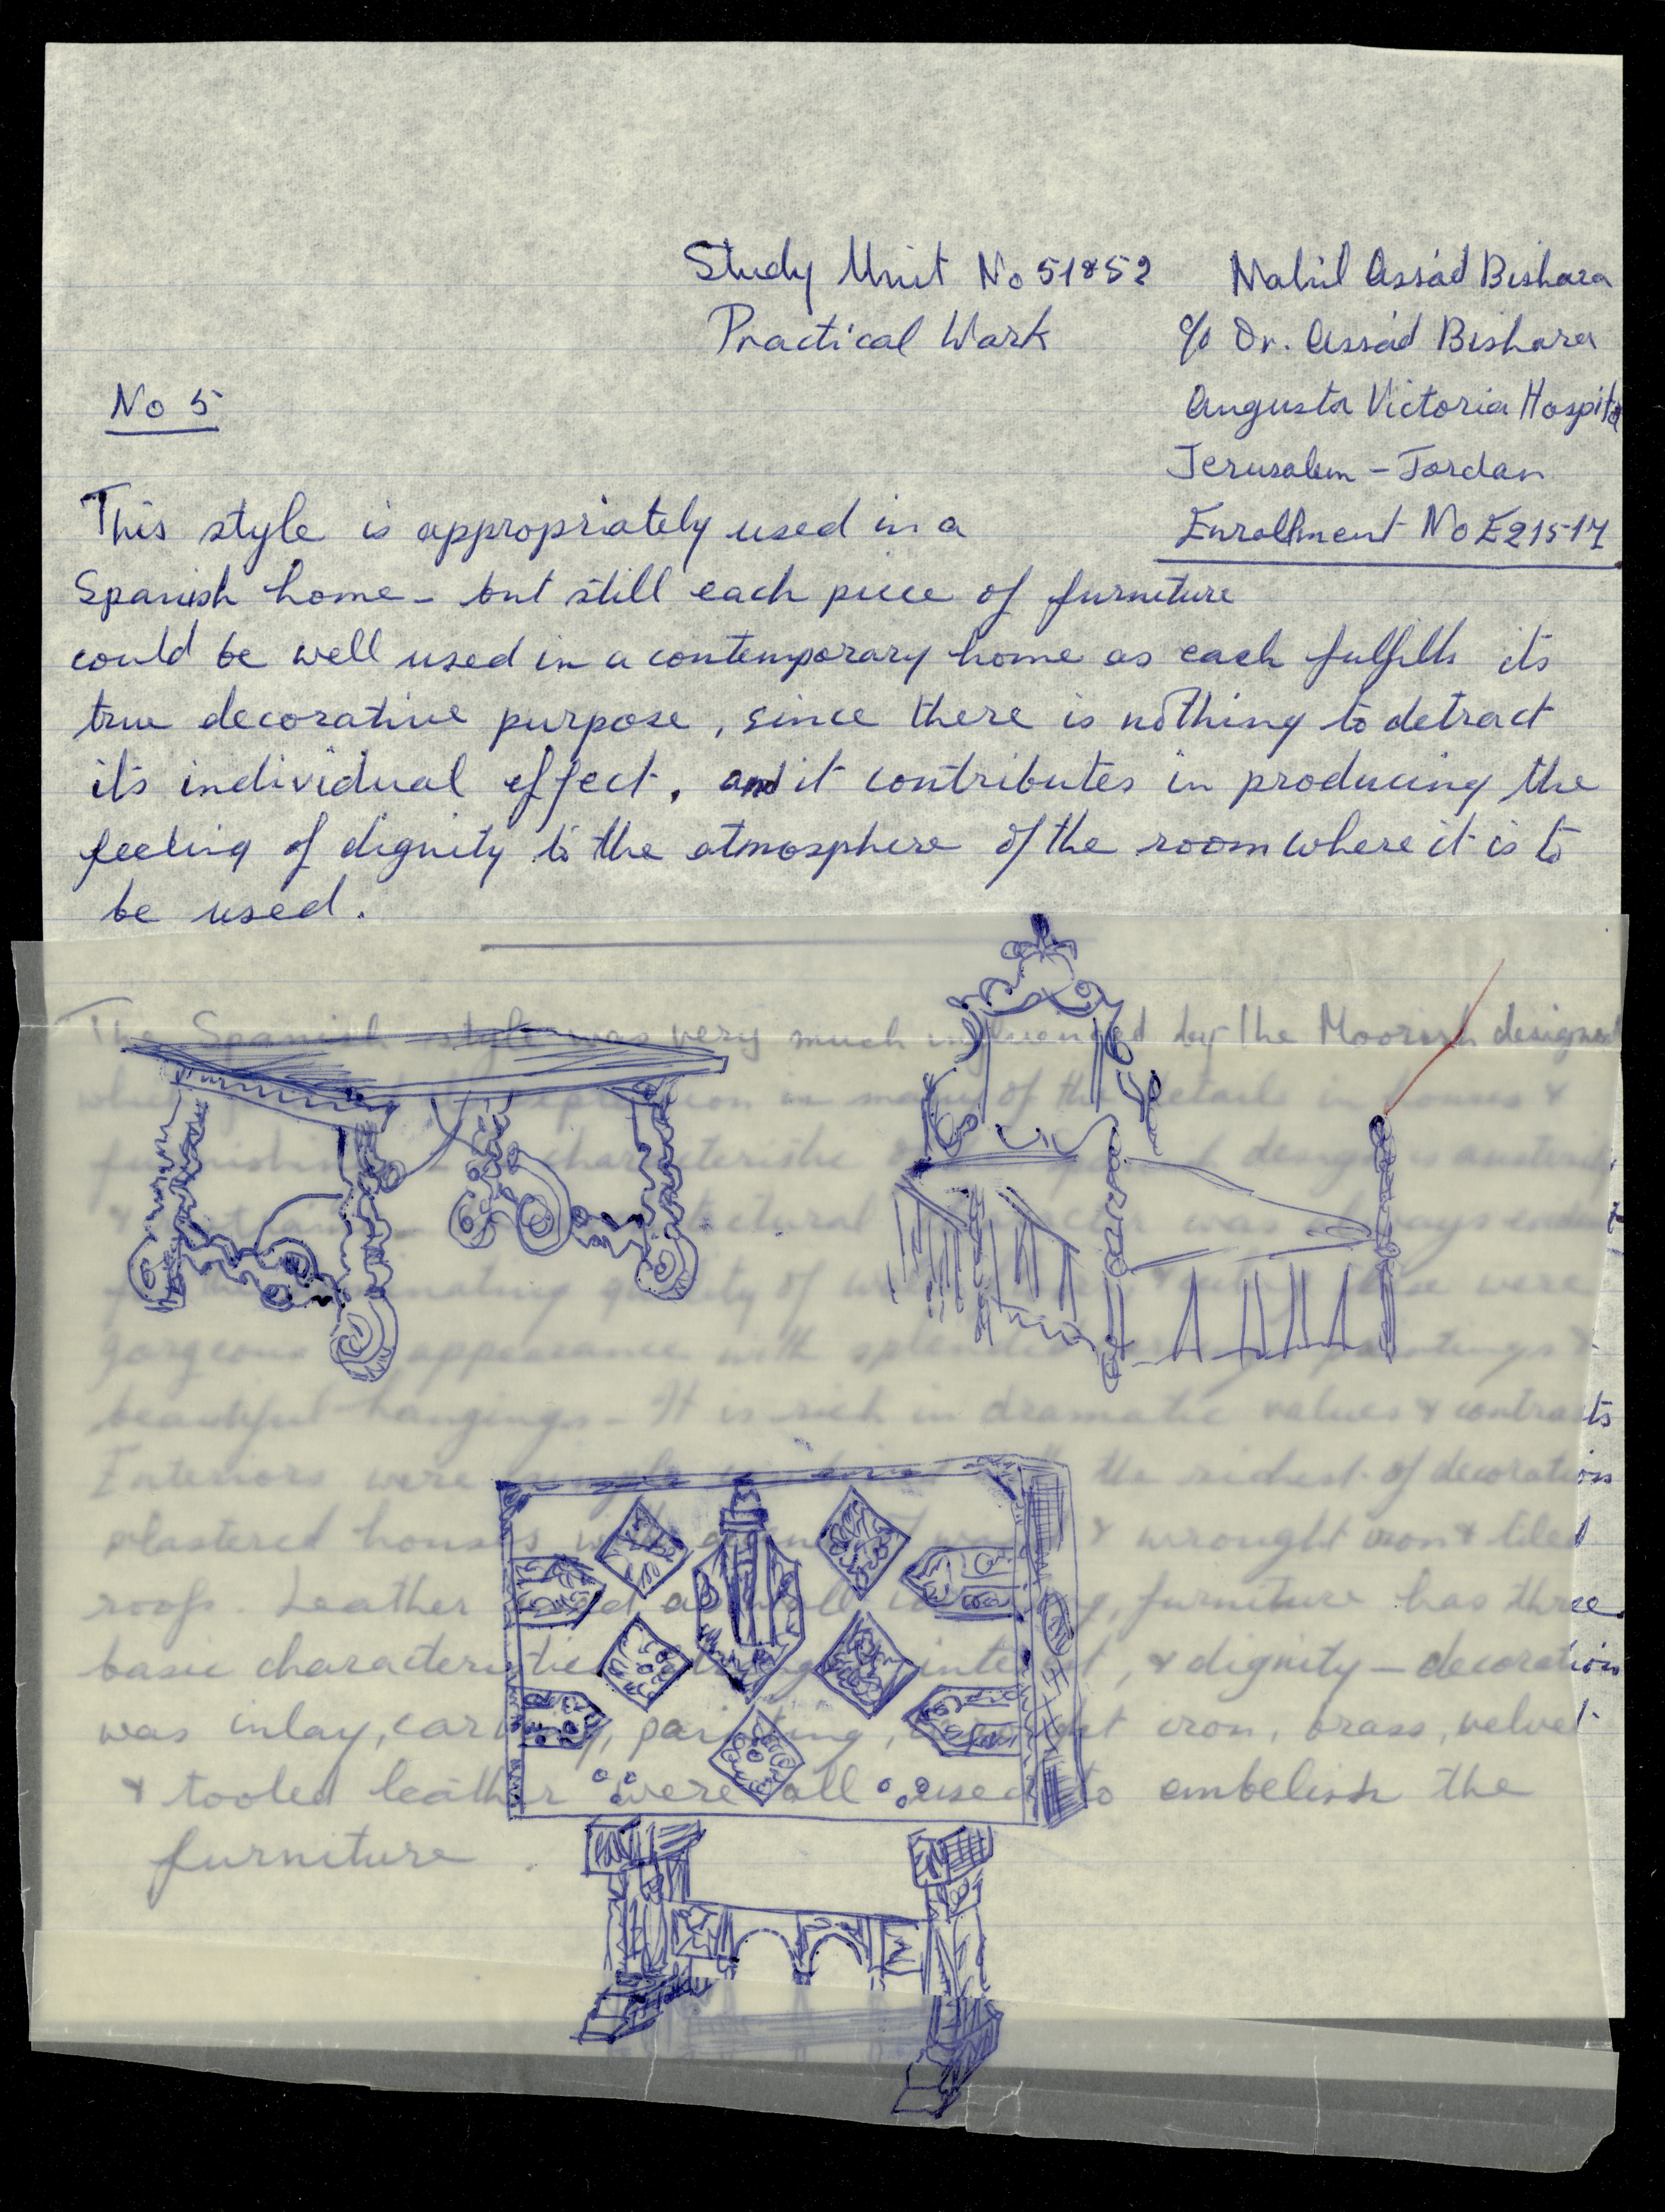 Study Unit No 51&52
Practical Work
Nabil Assád Bishara
c/o Dr. Assád Bishara
Augusta Victoria Hospita
Jerusalem - Jordan
Enrollment No E215-17
No 5
This style is appropriately used in a
Spanish home - but still each piece of furniture
could be well used in a contemporary home as each fulfills its
true decorative purpose, since there is nothing to detract
its individual effect. and it contributes in producing the
feeling of dignity to the atmosphere of the room where it is to
be used.
The Spanish style was very much influenced by the Moorish designs
which expression in many of the details in houses &
furnishing characteristic design is austerity
& was always
quality of were
gorgeous appearance with splendid paintings &
beautiful hangings - It is rich in dramatic values & contrasts
Interiors were simple the richest of decorations
plastered houses & wrought iron & tiled
roofs. Leather furniture has three
basic characteristics & dignity - decoration
was inlay, carving, painting, iron, brass, velvet
& tooled leather were all used to embelish the
furniture.